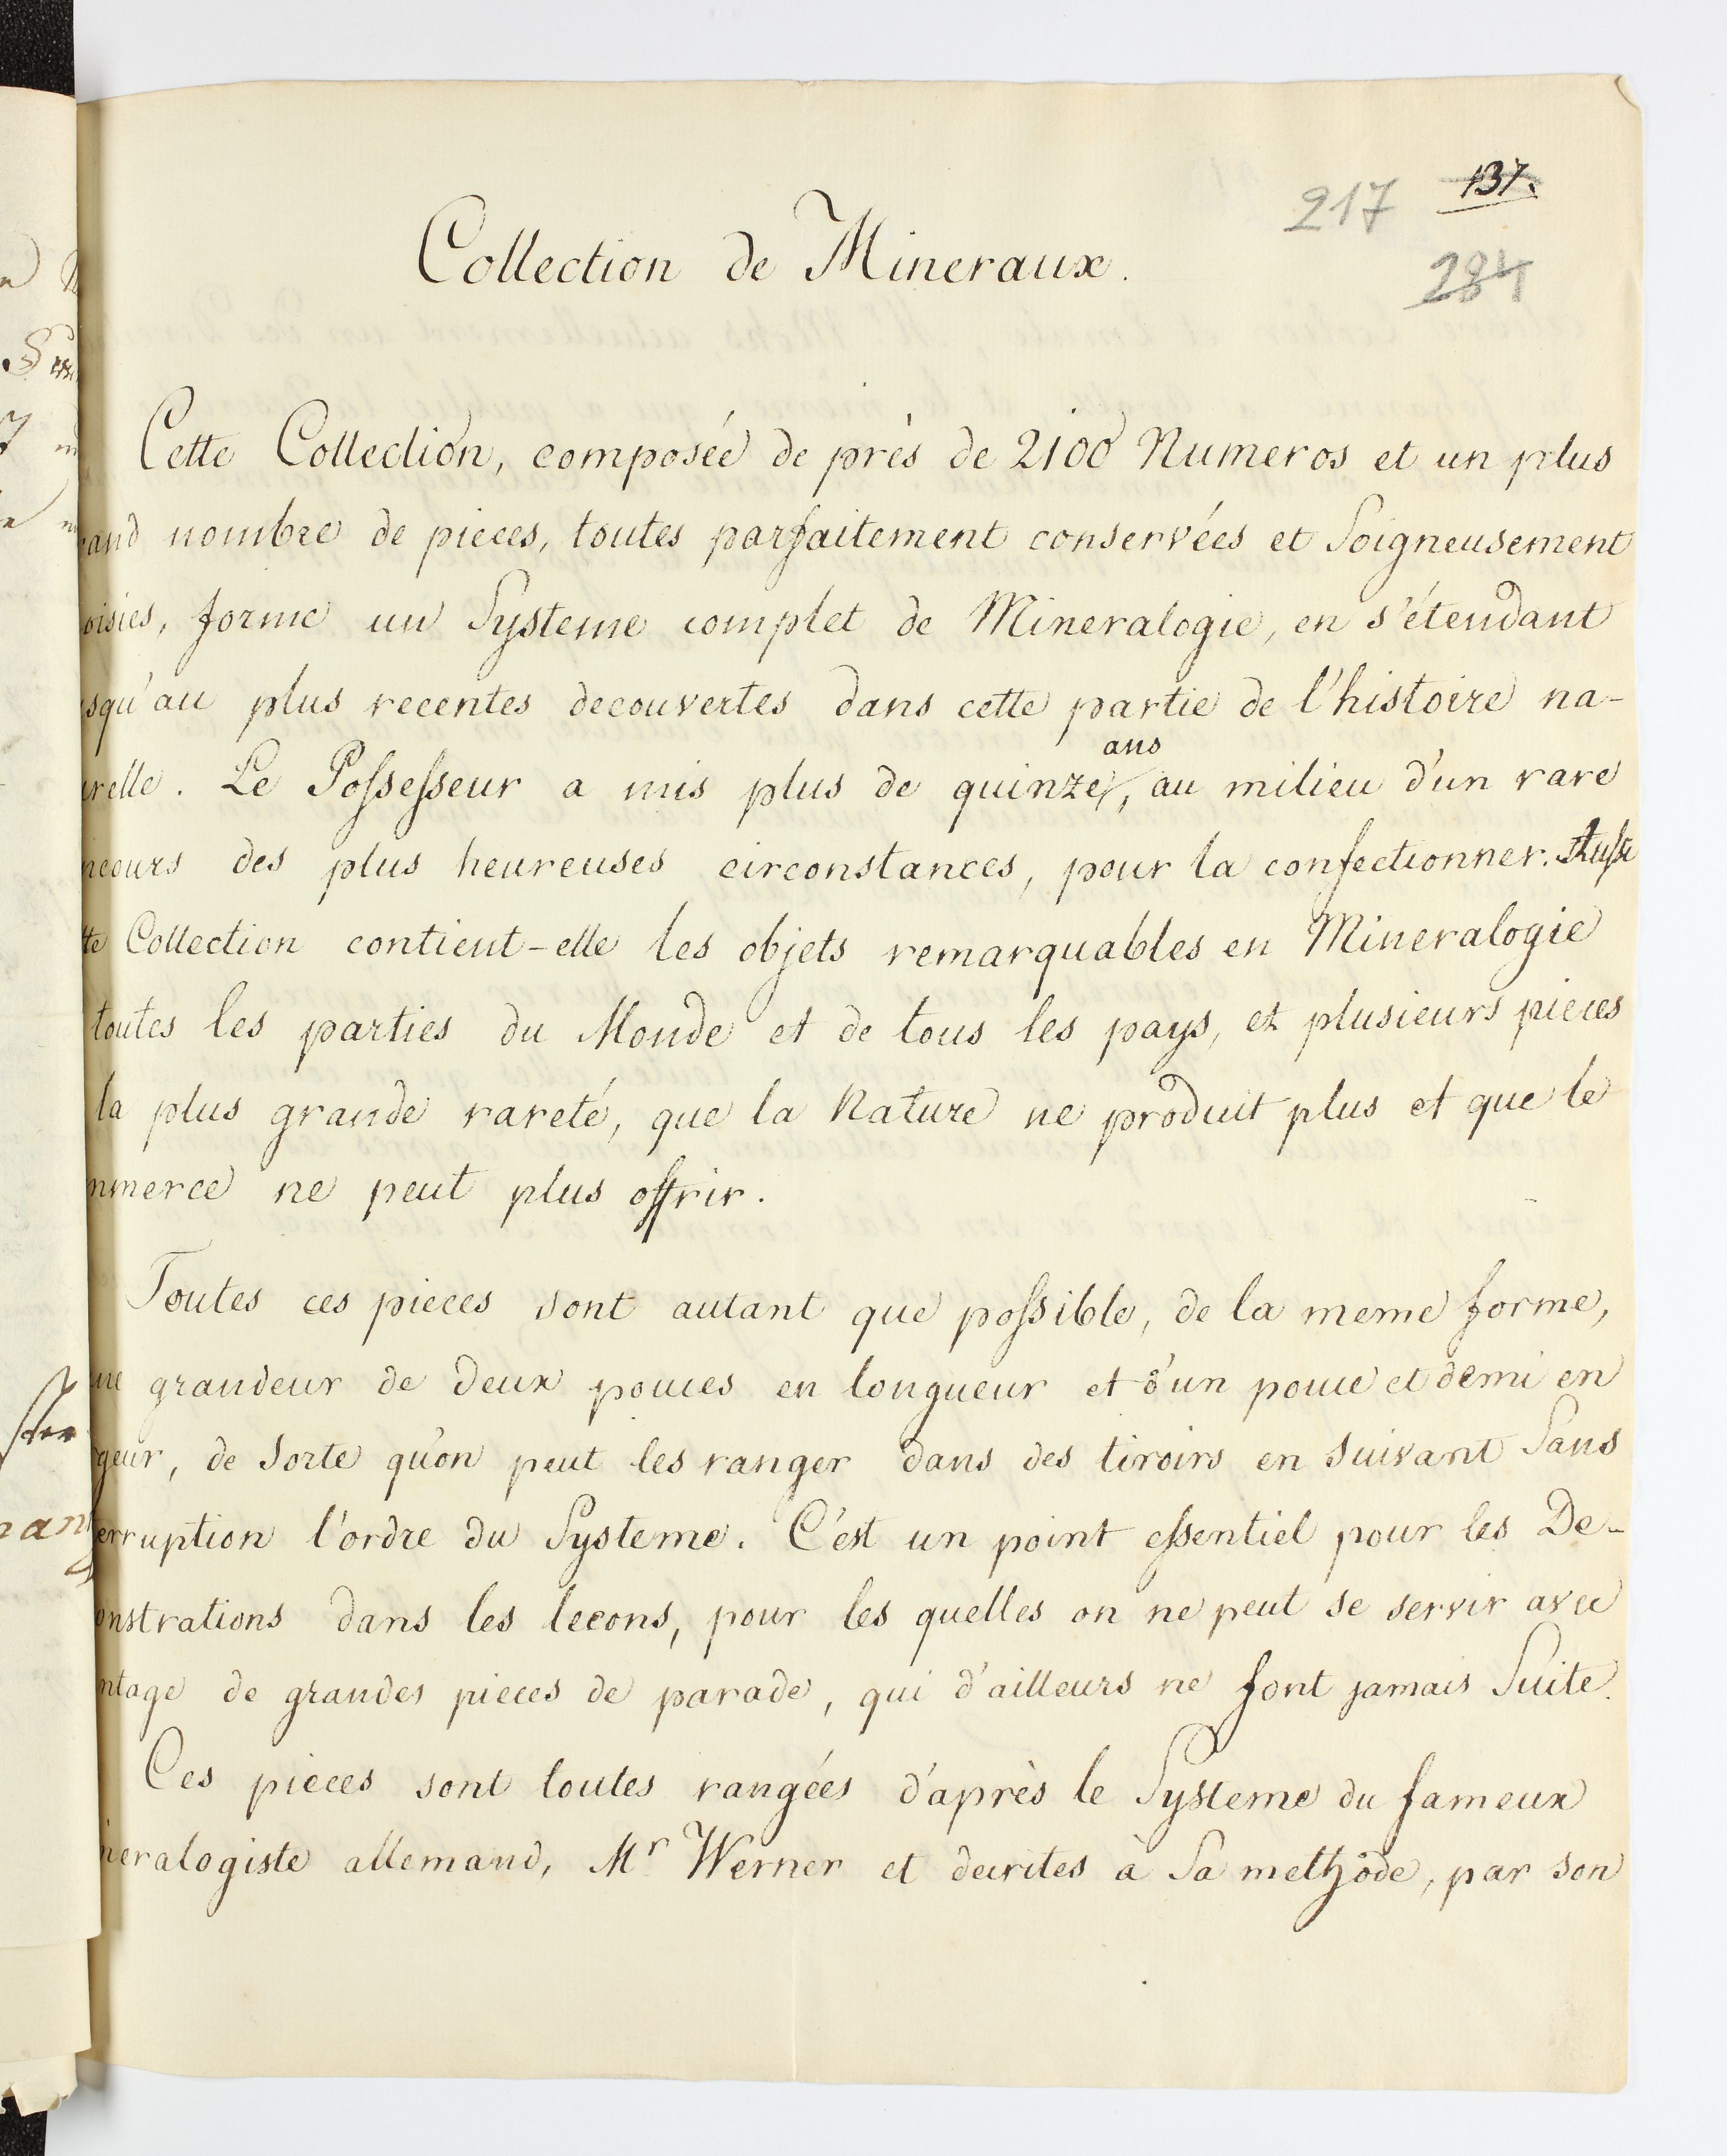 217 137.
Collection de Mineraux.
284
Cette Collection, composée de près de 2100 Numeros et un plus
rand nombre de pieces, toutes parfaitement conservées et Soigneusement
oisies, forme un Systeme complet de Mineralogie, en s'étendant
squ'au plus recentes decouvertes dans cette partie de l'histoire na-
urelle. Le Possesseur a mis plus de quinze ans, au milieu d'un rare
ncours des plus heureuses circonstances, pour la confectionner. Aussi
tte Collection contient-elle les objets remarquables en Mineralogie
toutes les parties du Monde et de tous les pays, et plusieurs pieces
la plus grande rareté, que la Nature ne produit plus et que le
mmerce ne peut plus offrir.
Toutes ces pieces sont autant que possible, de la meme forme,
une grandeur de deux pouces en longueur et d'un pouce et demi en
rgeur, de Sorte qu'on peut les ranger dans des tiroirs en suivant Sans
terruption l'ordre du Systeme. C'est un point essentiel pour les De-
onstrations dans les lecons, pour les quelles on ne peut se servir avec
ntage de grandes pieces de parade, qui d'ailleurs ne font jamais Suite.
Ces pieces sont toutes rangées d'après le Systeme du fameux
neralogiste allemand, Mr Werner et decrites à Sa methode, par son